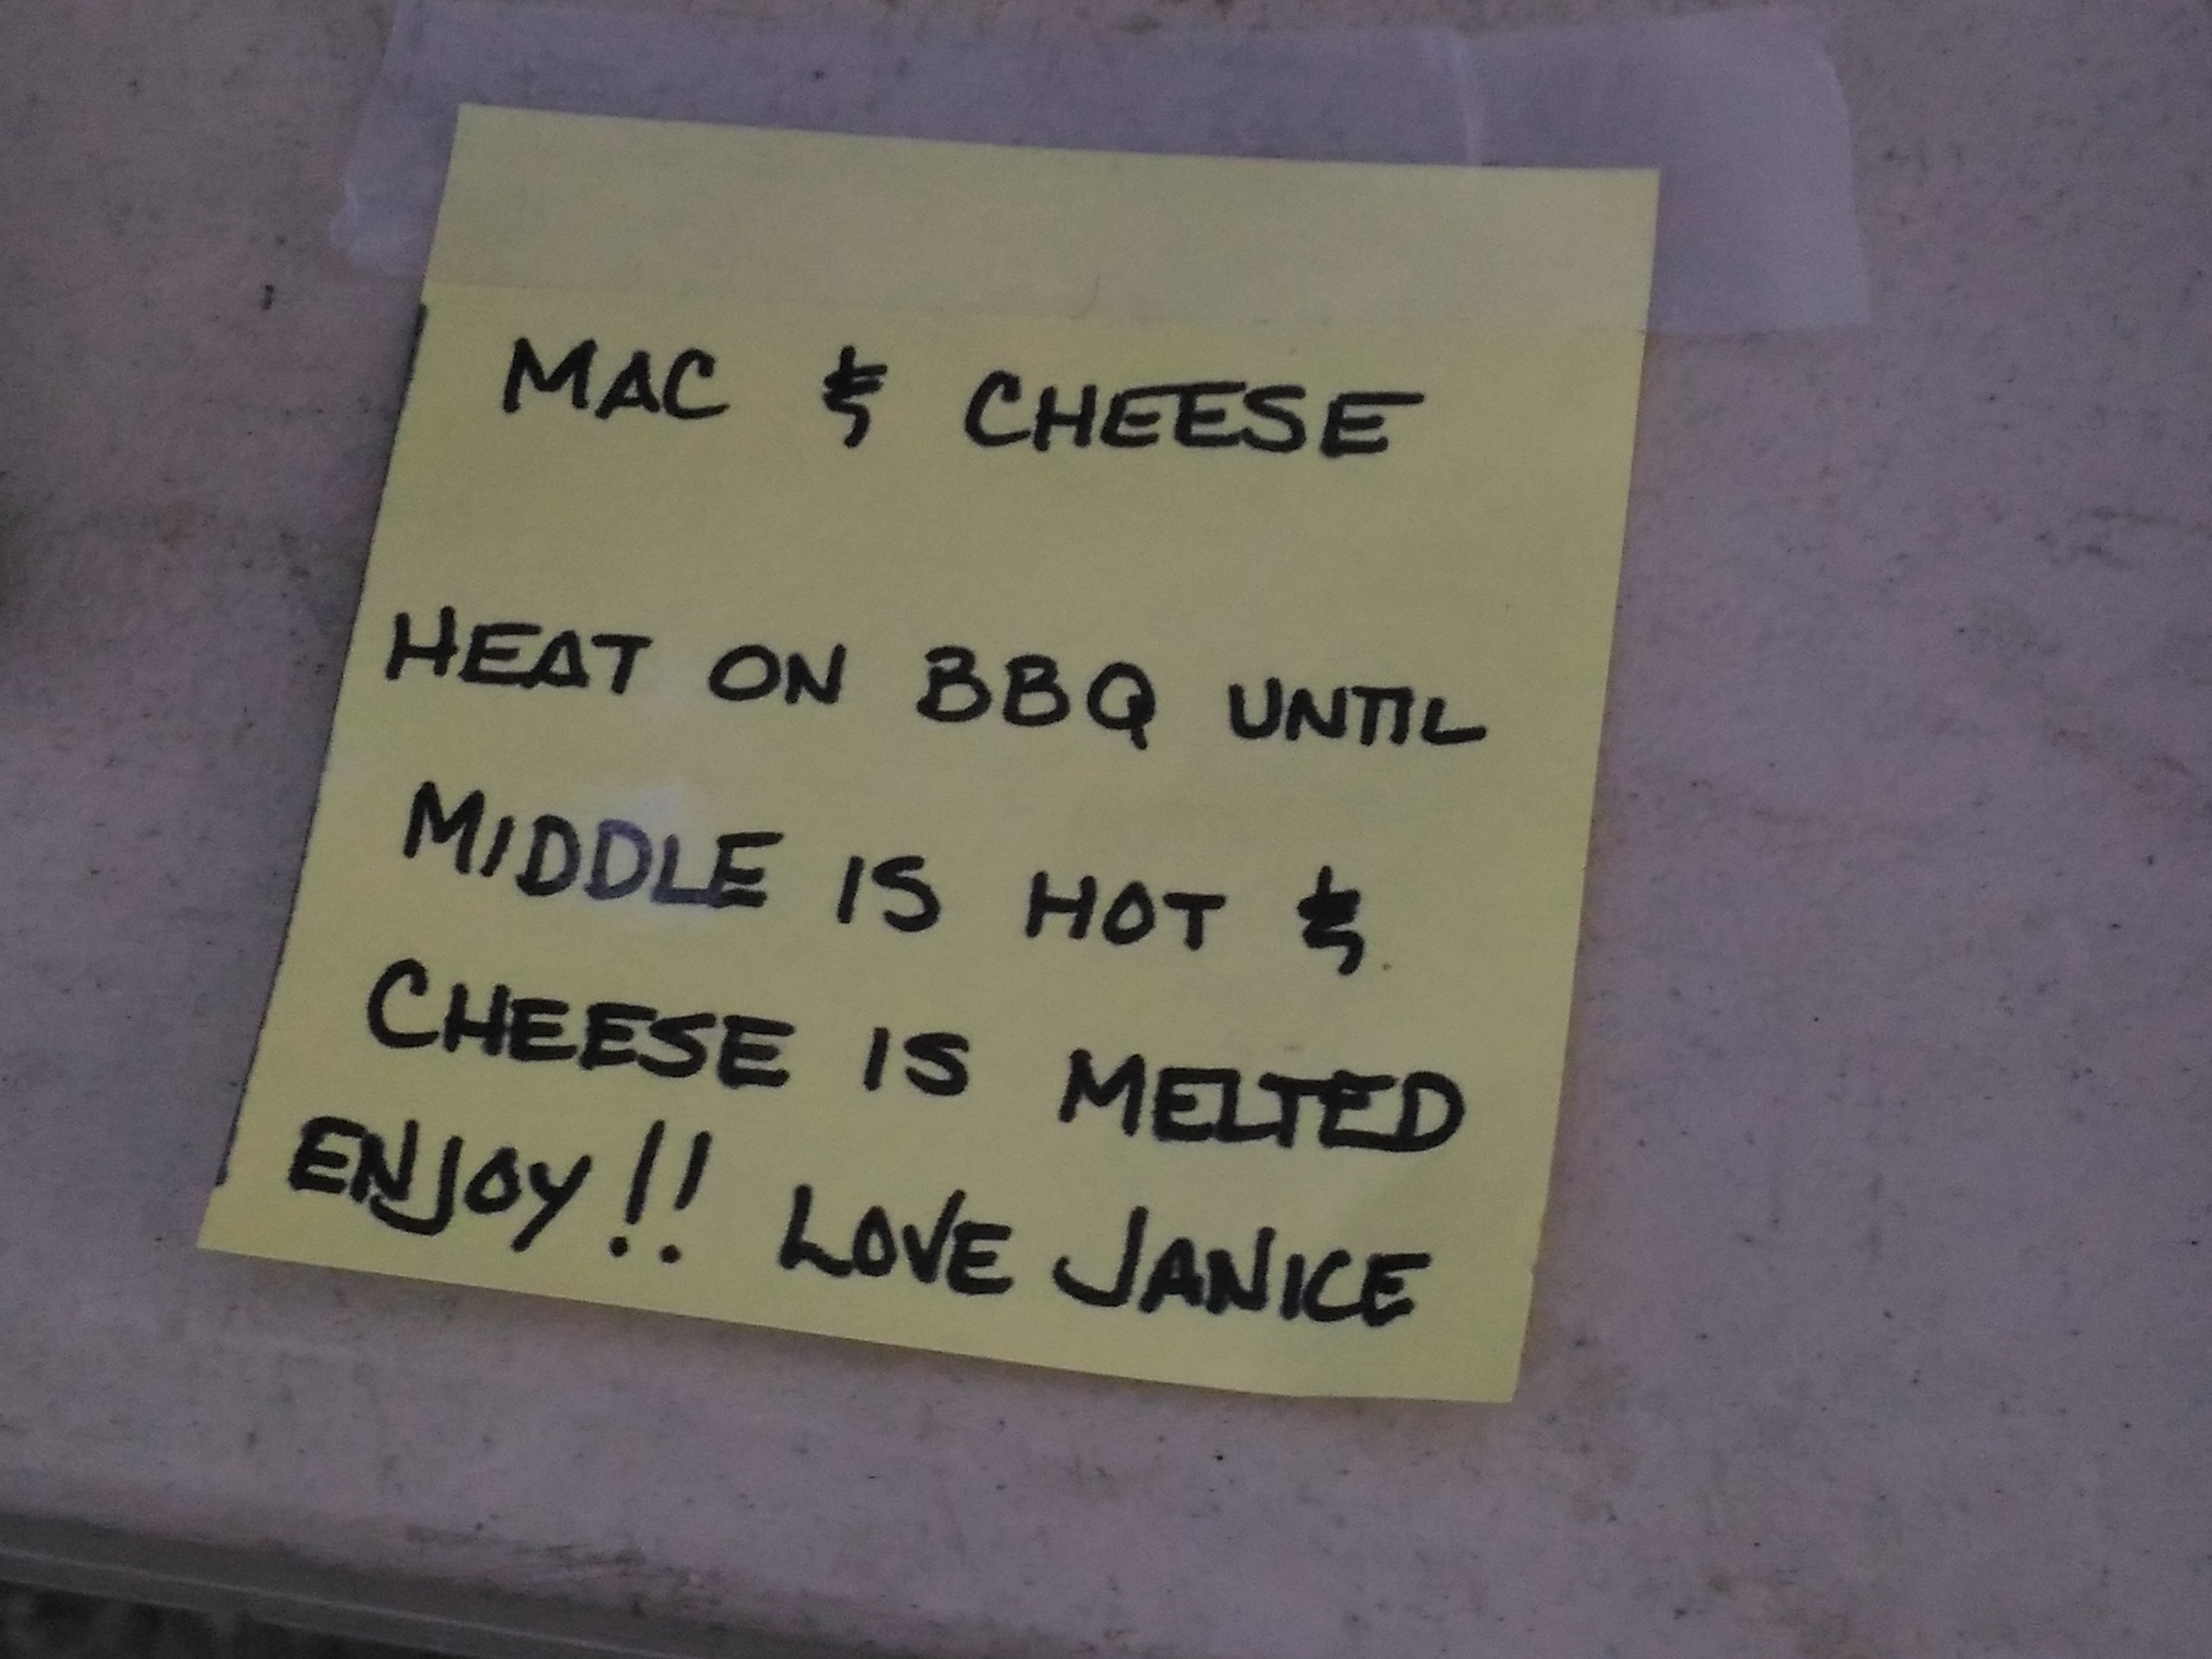 MAC & CHEESE
HEAT ON BBQ UNTIL
MIDDLE IS HOT &
CHEESE IS MELTED
ENJOY!! LOVE JANICE